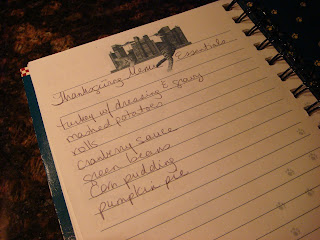 Thanksgiving Menu Essentials
turkey w/ dressing & gravy
mashed potatoes
rolls
cranberry sauce
green beans
corn pudding
pumpkin pie